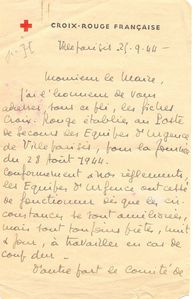 CROIX-ROUGE FRANÇAISE
Villeparisis 25-9-44 -
Monsieur le Maire,
J'ai l'honneur de vous
adresser sous ce pli, les fiches
Croix Rouge établies au Poste
de Secours des Equipes d'Urgence
de Villeparisis, pour la journée
du 28 Août 1944.
Conformément à nos règlements,
les Equipes d'Urgence ont cessé
de fonctionner dès que les cir-
constances se sont améliorées,
mais sont toujours prêtes, nuit
& jour, à travailler en cas de
coup dur -
D'autre part le Comité de